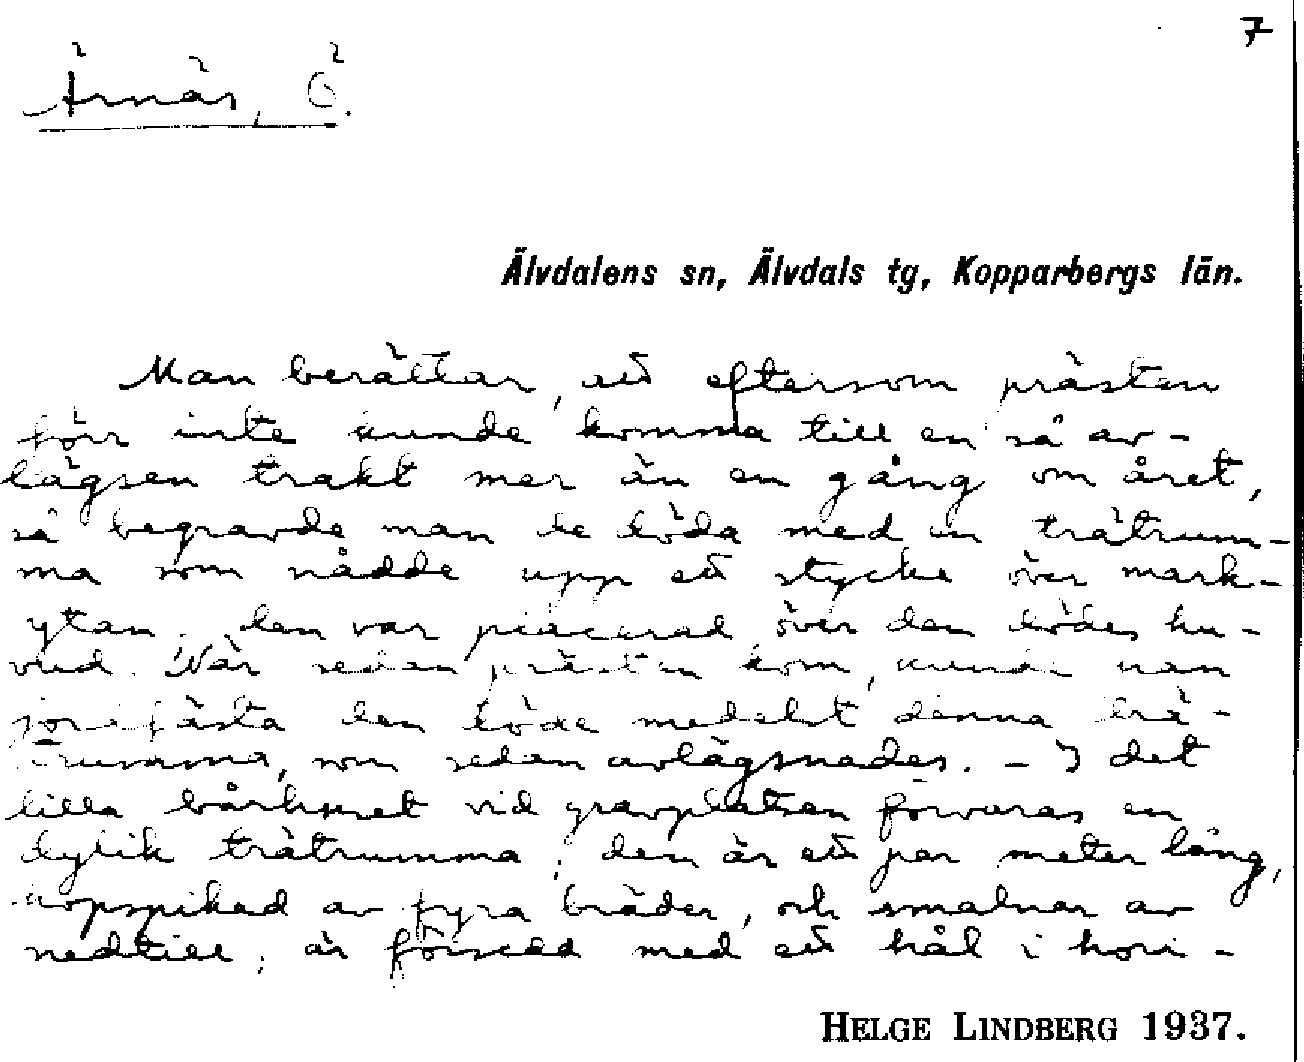 7
Årnäs, Ö.
Älvdalens sn, Älvdals tg, Kopparbergs län.
Man berättar, att eftersom prästen
förr inte kunde komma till en så av-
lägsen trakt mer än en gång om året,
så begravde man de döda med en trätrum-
ma som nådde upp ett stycke över mark-
ytan; den var placerad över den dödes hu-
vud. När sedan prästen kom, kunde man
jordfästa den döde medelst denna trä-
trumma, som sedan avlägsnades. - I det
lilla bårhuset vid gravplatsen förvaras en
dylik trätrumma; den är ett par meter lång,
hopspikad av fyra bräder, och smalnar av
nedtill; är försedd med ett hål i hori-
HELGE LINDBERG 1937.